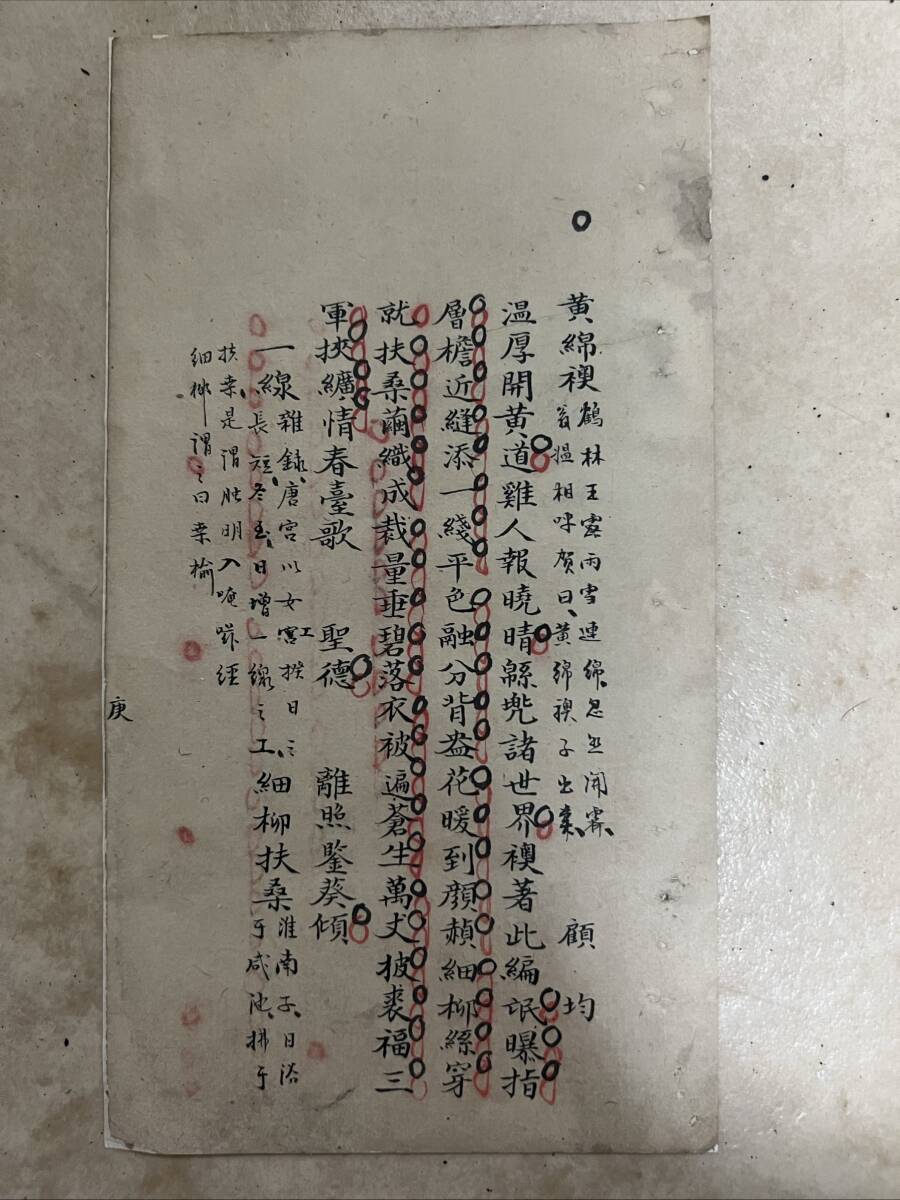 黃綿襖 鶴林王露雨雪連綿忽然開霽、
翁媼相呼賀曰、黃綿襖子出矣、
顧均
溫厚開黃道雞人報曉晴緜兜諸世界襖著此編氓曝指
層檐近縫添一綫平色融分背盎花暖到顏赬細柳絲穿
就扶桑繭織成裁量垂碧落衣被遍蒼生萬丈披裘福三
軍挾纊情春臺歌 聖德 離照鑒葵傾
一線 雜錄、唐宮以女工揆日之
長短、冬至、日增一線之工、
細柳扶桑 淮南子、日浴
于咸池、拂于
扶桒是謂朏明入崦嵫經
細柳謂之曰桒榆
庚